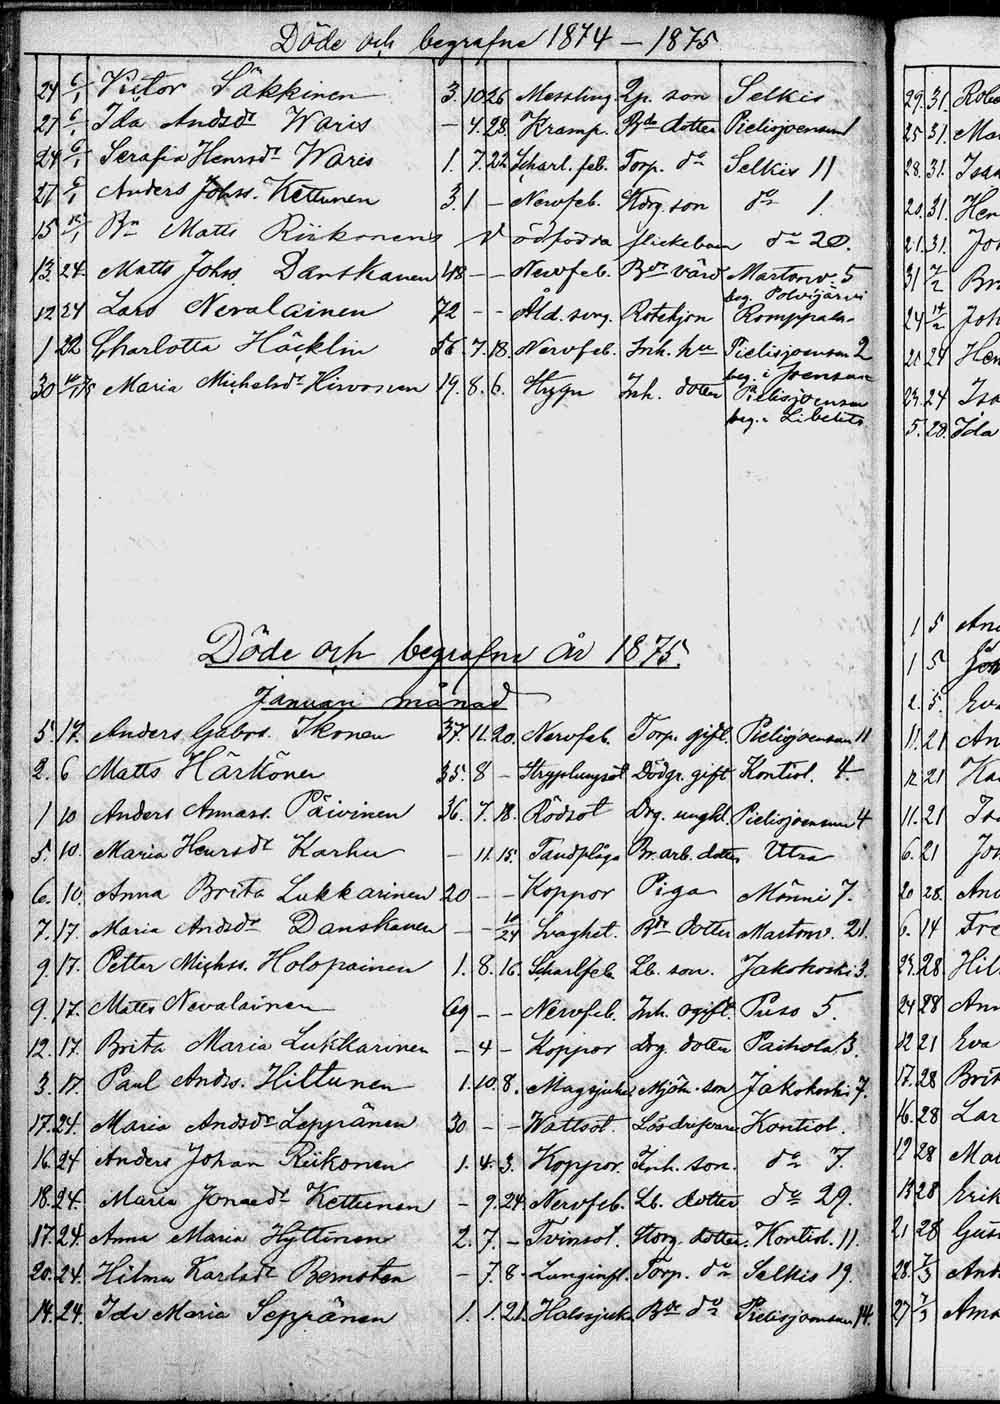 Döde och begrafne 1874 – 1875
24 6/1 Victor Säkkinen 3. 10 26 Messling Lp. son Selkis
27 6/1 Ida Andsdr Waris – 4. 28. Kramp. Bde dotter Pielisjoensuu 1
24 6/1 Serafia Henrsdr Waris 1. 7. 22 Scharl. feb. Torp. do Selkis 11
27 6/1 Anders Johss. Kettunen 3. 1 – Nervfeb. Storg. son do 1.
15 Bn Matts Riikonens dödfödda flickebarn do 20.
13. 24. Matts Johss. Danskanen 48 – – Nervfeb. Bde värd Martonv. 5
beg. Polvijärvi
12 24 Lars Nevalainen 72 – – Åld. svag. Rotehjon Romppala
1 22 Charlotta Häcklin 56. 7. 18. Nervfeb. Inh. hu Pielisjoensuu 2
beg. i Joensuu
30 Maria Michelsdr Hirvonen 19. 8. 6. Inh. dotter Pielisjoensuu
beg. i Libelits
Döde och begrafne år 1875.
Januari månad
5. 17. Anders Gabrs. Ikonen 37. 11. 20. Nervfeb. Torp. gift. Pielisjoensuu 11
2. 6 Matts Härkönen 35. 8 – Strypslungsot Dödgr. gift Kontiol. 4
1 10 Anders Annass. Päivinen 36. 7. 18. Rödsot Drg. ungkl. Pielisjoensuu 4
5. 10. Maria Henrsdr Karhu – 11. 15. Tandplåga Br. arb. dotter Utra
6. 10. Anna Brita Lukkarinen 20 – – Koppor Piga Mönni 7.
7. 17. Maria Andsdr Danskanen – – 10/24 Svaghet. Bde dotter Martonv. 21.
9. 17. Petter Michss. Holopainen 1. 8. 16. Scharlfeb. Lb. son. Jakokoski 3.
9. 17. Matts Nevalainen 69 – – Nervfeb. Inh. ogift. Puso 5.
12. 17. Brita Maria Lukkarinen – 4 – Koppor Drg. dotter Paihola 3.
3. 17. Paul Anders. Hiltunen 1. 10. 8. Magsjuka Mjöln. son Jakokoski 7.
17. 24. Maria Andsdr Leppänen 30 – – Wattsot. Lösdrifvare Kontiol.
16. 24 Anders Johan Riikonen 1. 4. 3. Koppor. Inh. son. do 7.
18. 24. Maria Jonaedr Kettunen – 9. 24 Nervfeb. Lb. dotter do 29.
17. 24. Anna Maria Hyttinen 2. 7. – Tvinsot. Storg. dotter. Kontiol. 11.
20. 24. Hilma Karlsdr Bernsten – 7. 8. Lunginfl. Torp. do Selkis 19.
14. 24. Ida Maria Seppänen 1. 1. 21. Halssjuka Bde do Pielisjoensuu 14.
29. 31.
25 31. Mar
28. 31. Isak
20. 31. Hen
21. 31. Joh
31 7/2 Br
24 14/2 Joh
21 24 Hen
23. 24 Isa
5. 28. Ida
1 5 And
1 5 Joh
2. 5. Eva
11. 21 An
12 21 Ka
11. 21 Isa
6. 21 Joh
20 28. And
6. 14 Fre
23. 28. Hil
24 28 Ann
12 21 Eva
17. 28 Brit
16. 28 Lar
17 28 Mat
13 28 Erik
21 28 Gus
28. 7/3 And
27 7/3 Anna